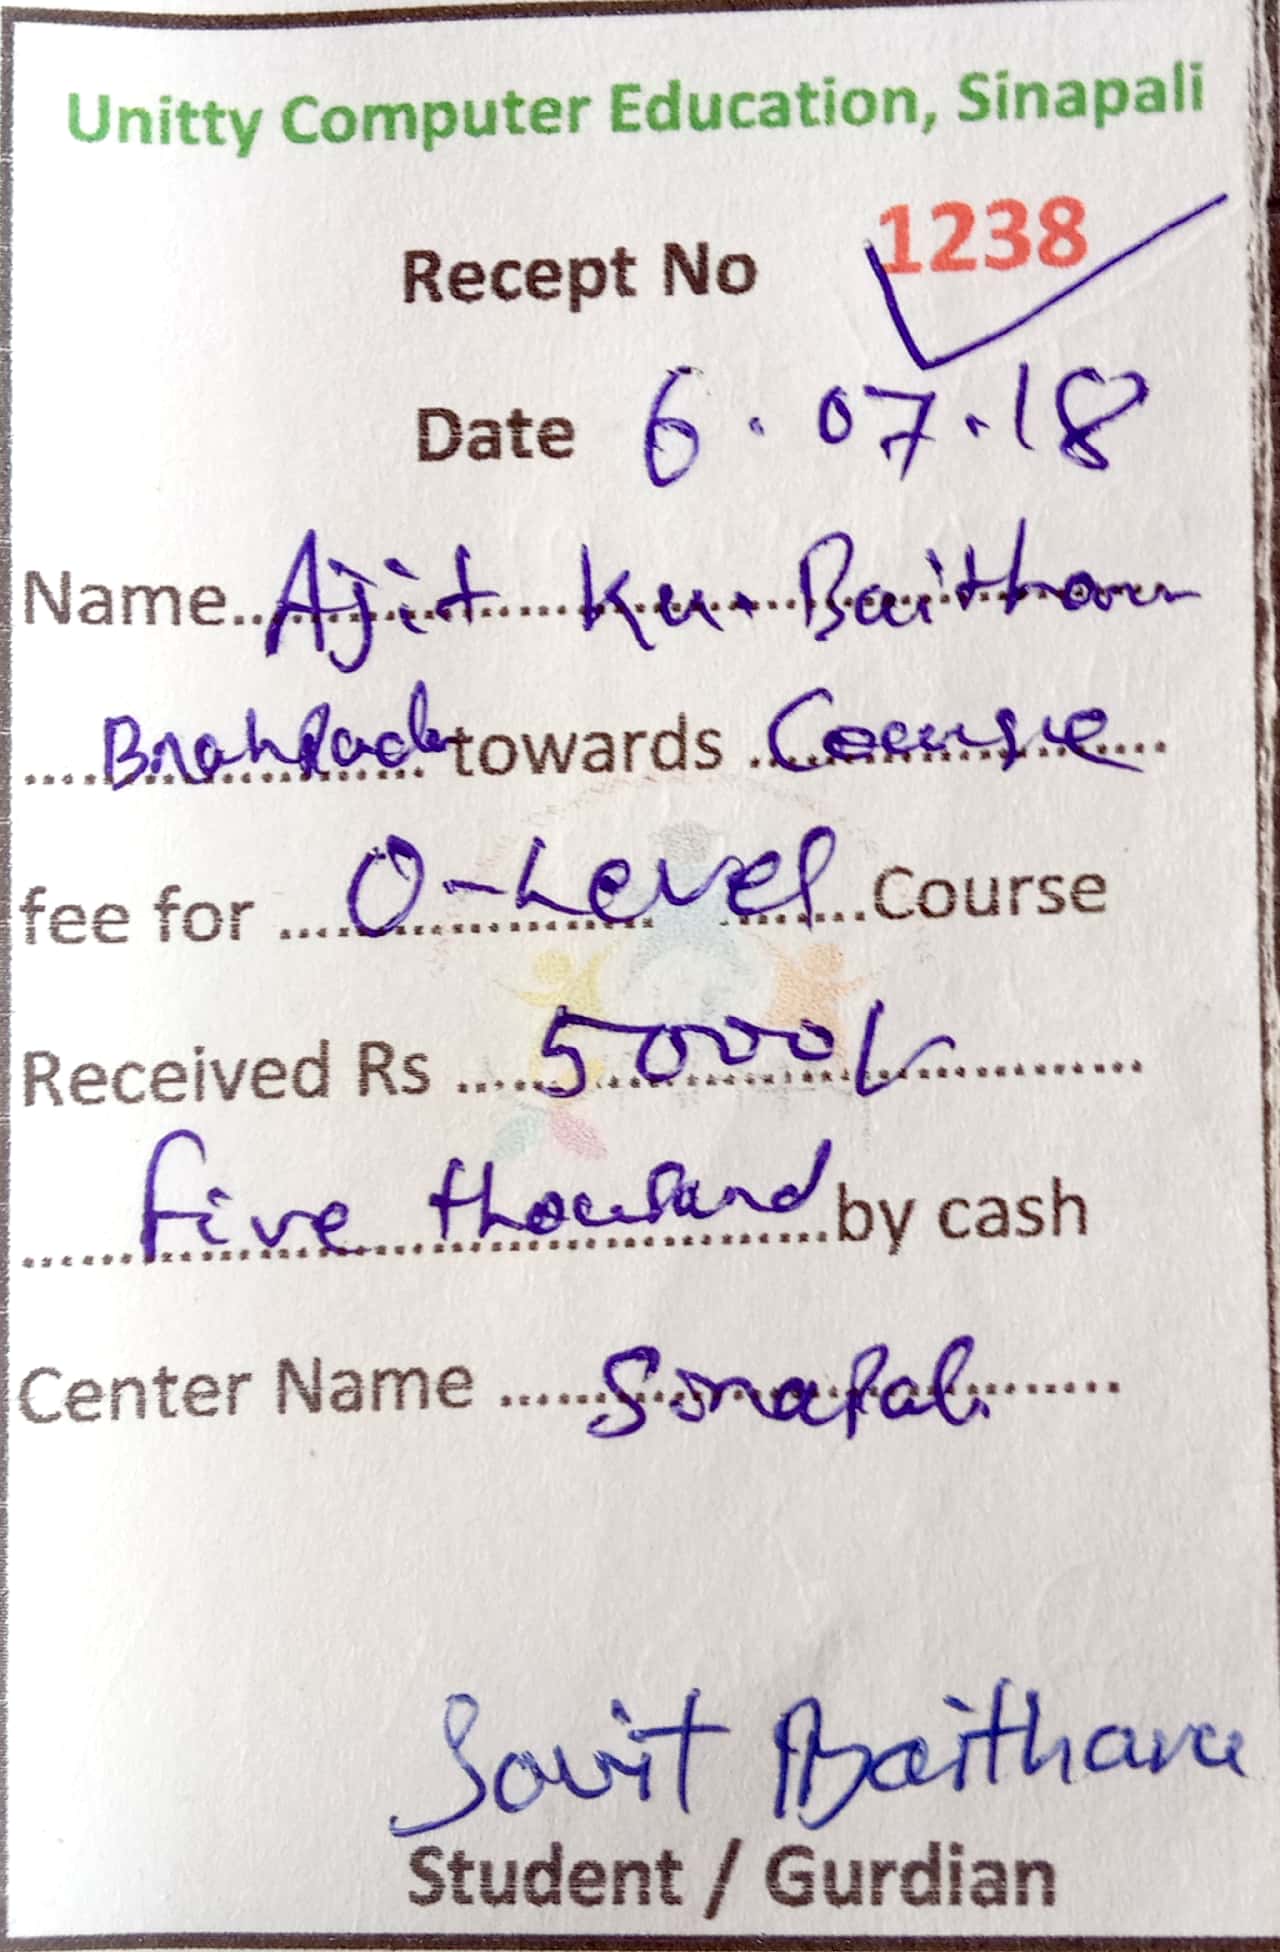 Unitty Computer Education, Sinapali
Recept No 1238
Date 6.07.18
Name.. Ajit Ku. Baitharu
towards Course
fee for O-Level Course
Received Rs 5000/-
five thousand by cash
Center Name Sinapali
Baitharu
Student / Gurdian